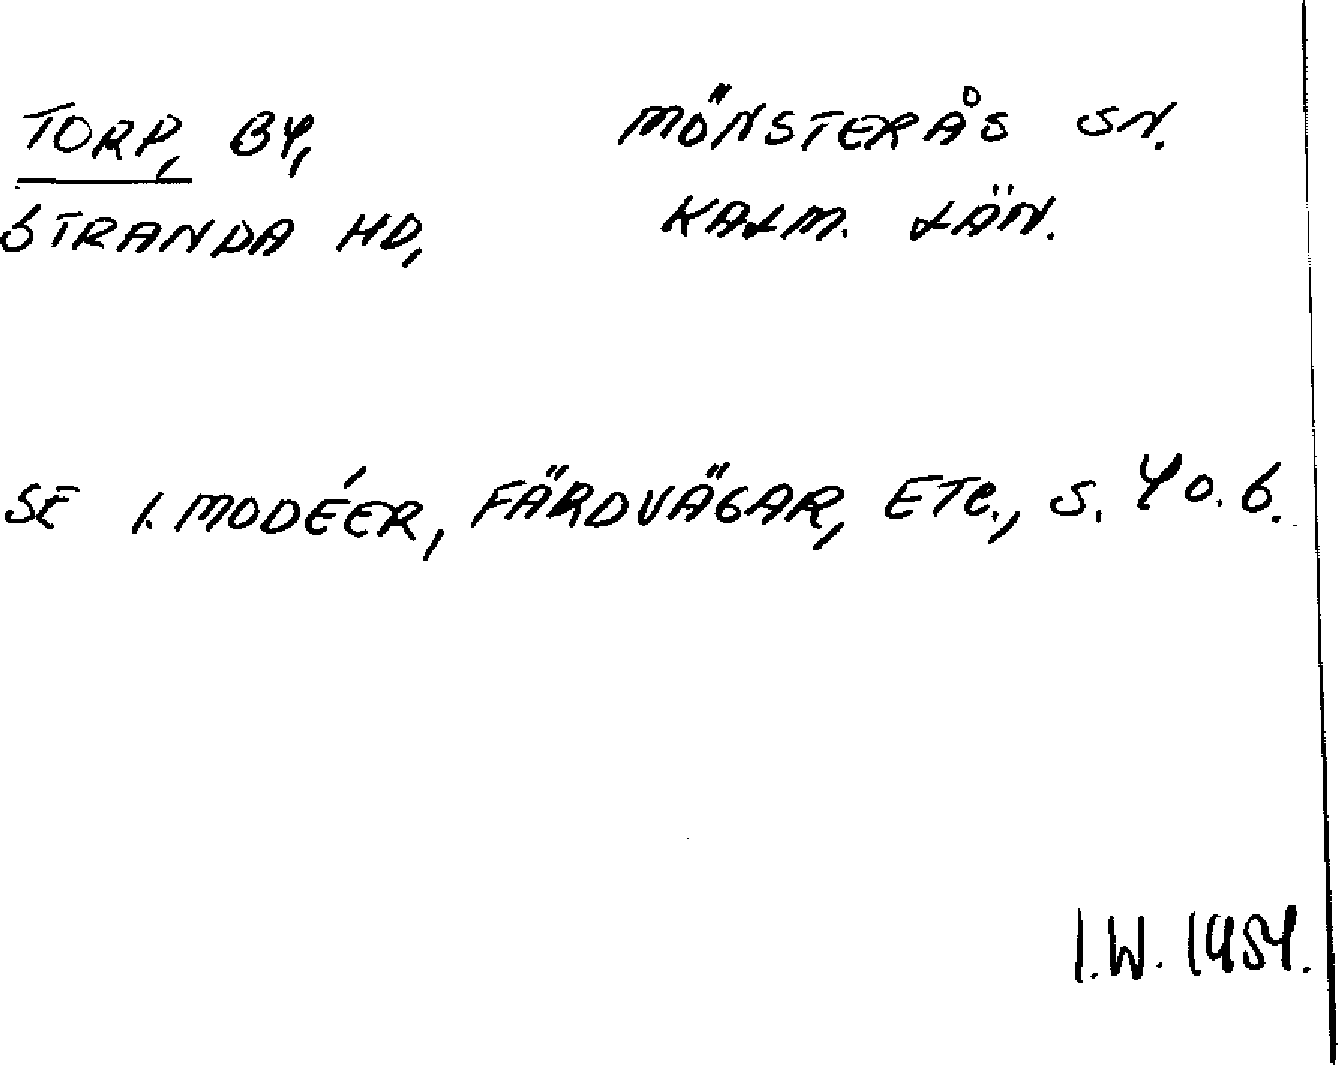 TORP, BY, MÖNSTERÅS SN.
STRANDA HD, KALM. LÄN.
SE I. MODÉER, FÄRDVÄGAR, ETC., S. 4 O. 6.
I.W. 1954.